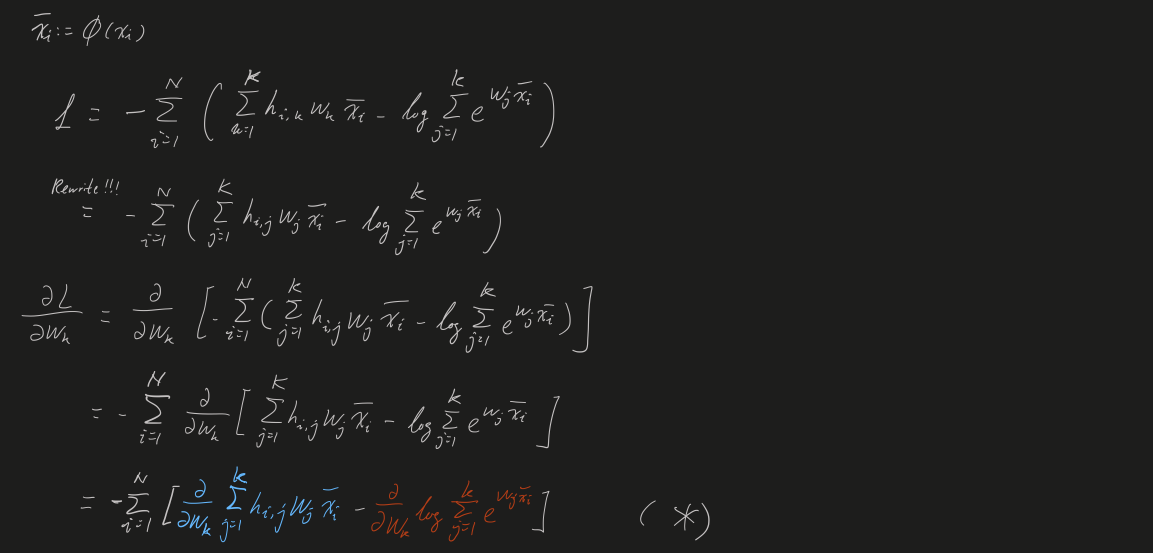 x̄ᵢ := ϕ(xᵢ)
L = - ∑_{i=1}^{N} ( ∑_{k=1}^{K} h_{i,k} w_k x̄ᵢ - log ∑_{j=1}^{K} e^{w_j x̄ᵢ} )
Rewrite!!!
= - ∑_{i=1}^{N} ( ∑_{j=1}^{K} h_{i,j} w_j x̄ᵢ - log ∑_{j=1}^{K} e^{w_j x̄ᵢ} )
∂L/∂w_k = ∂/∂w_k [ - ∑_{i=1}^{N} ( ∑_{j=1}^{K} h_{i,j} w_j x̄ᵢ - log ∑_{j=1}^{K} e^{w_j x̄ᵢ} ) ]
= - ∑_{i=1}^{N} ∂/∂w_k [ ∑_{j=1}^{K} h_{i,j} w_j x̄ᵢ - log ∑_{j=1}^{K} e^{w_j x̄ᵢ} ]
= - ∑_{i=1}^{N} [ ∂/∂w_k ∑_{j=1}^{K} h_{i,j} w_j x̄ᵢ - ∂/∂w_k log ∑_{j=1}^{K} e^{w_j x̄ᵢ} ] (*)